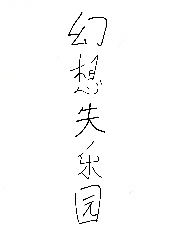 幻想失乐园